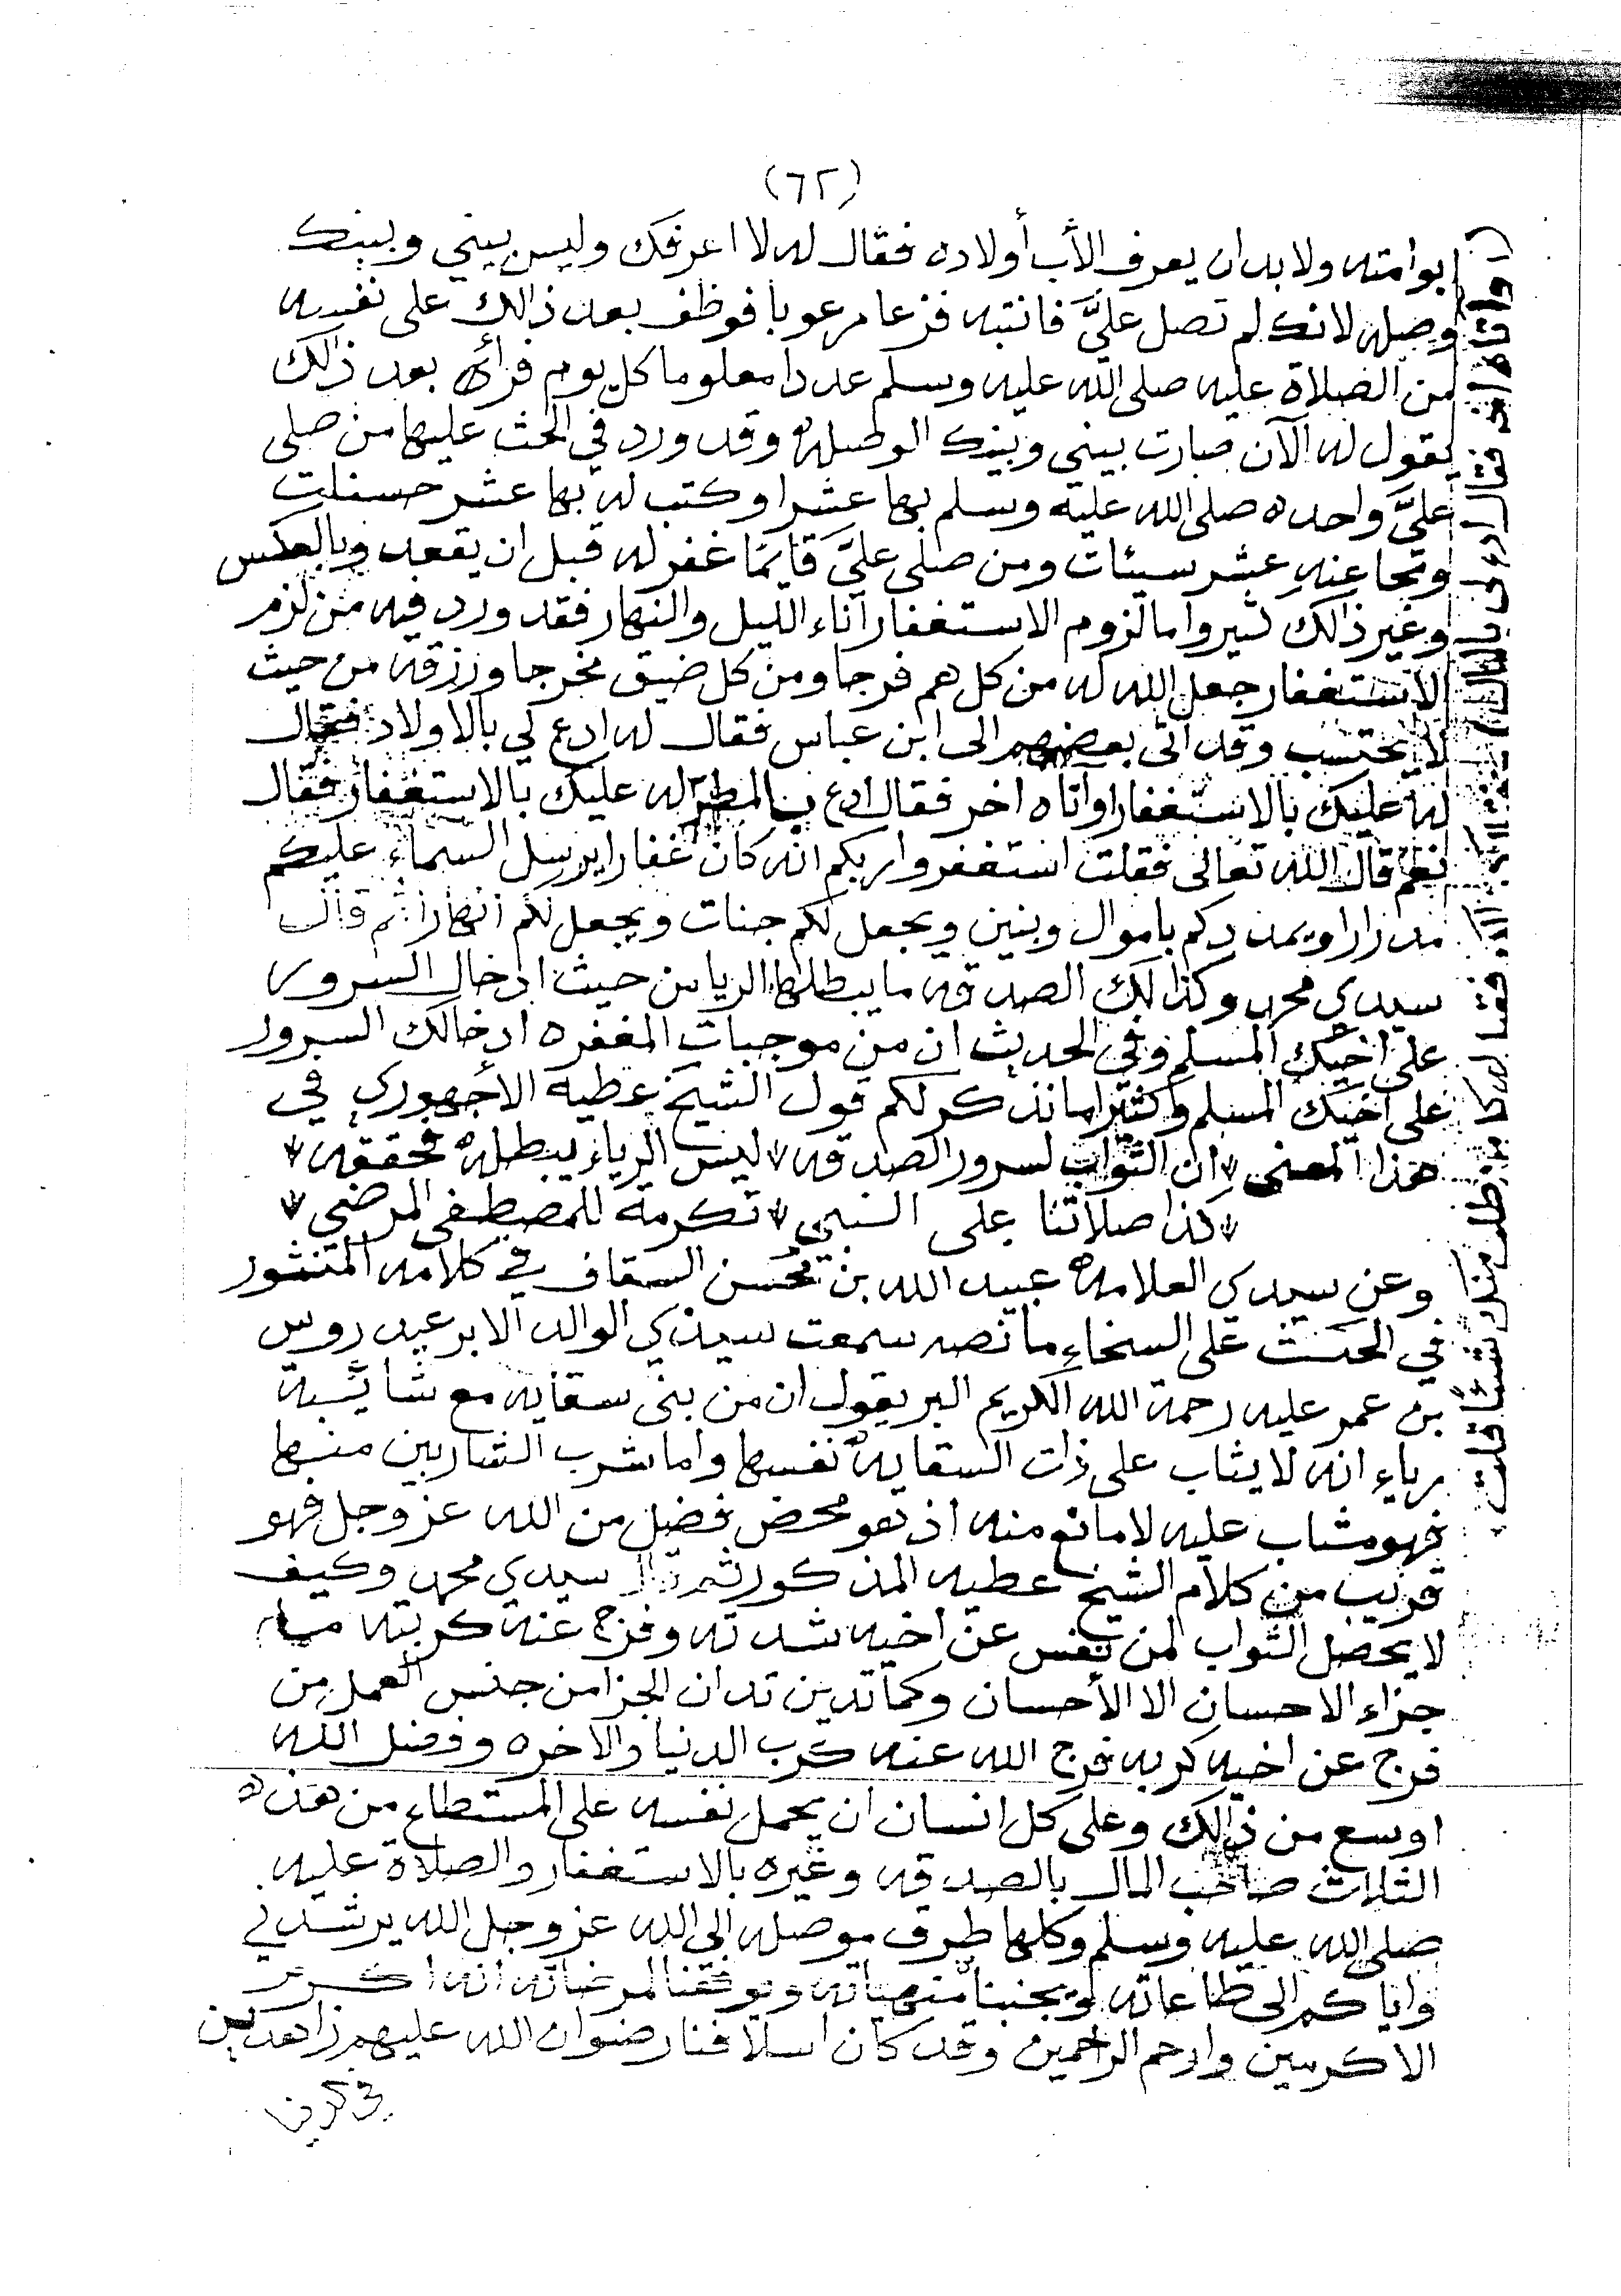 (٦٢)
ابوامته ولابد ان يعرف الأب أولاده فقال له لا اعرفك وليس بيني وبينك
وصله لانك لم تصل عليَّ فانتبه فزعا مرعوبا فوظف بعد ذالك على نفسه
من الصلاة عليه صلى الله عليه وسلم عددا معلوما كل يوم فرأه بعد ذالك
يقول له الآن صارت بيني وبينك الوصله وقد ورد في الحث عليها من صلى
عليَّ واحده صلى الله عليه وسلم بها عشرا وكتب له بها عشر حسنات
ومحا عنه عشر سيئات ومن صلى عليَّ قايمًا غفر له قبل ان يقعد وبالعكس
وغير ذالك كثير واما لزوم الاستغفار آناء الليل والنهار فقد ورد فيه من لزم
الاستغفار جعل الله له من كل هم فرجا ومن كل ضيق مخرجا ورزقه من حيث
لا يحتسب وقد اتى بعضهم الى ابن عباس فقال له ادع لي بالاولاد فقال
له عليك بالاستغفار واتاه اخر فقال ادع بالمطر له عليك بالاستغفار فقال
نعم قال الله تعالى فقلت استغفروا ربكم انه كان غفارا يرسل السماء عليكم
مدرارا ويمددكم باموال وبنين ويجعل لكم جنات ويجعل لكم انهارا ثم قال
سيدي محمد وكذالك الصدقه ما يبطلها الريا من حيث ادخال السرور
على اخيك المسلم وفي الحديث ان من موجبات المغفره ادخالك السرور
على اخيك المسلم وكثيرا ما نذكر لكم قول الشيخ عطيه الأجهوري في
هذا المعنى ان الثواب لسرور الصدقه ليس الرياء يبطله محققه
كذا صلاتنا على النبي تكرمة للمصطفى المرضي
وعن سيدي العلامه عبيد الله بن محسن السقاف في كلامه المنثور
في الحث على السخاء ما نصه سمعت سيدي الوالد الابر عيدروس
بن عمر عليه رحمة الله الكريم البر يقول ان من بنى سقايه مع شائبة
رياء انه لا يثاب على ذات السقايه نفسها واما شرب الشاربين منها
فهو مثاب عليه لا مانع منه اذ هو محض فضل من الله عز وجل فهو
قريب من كلام الشيخ عطيه المذكور ثم قال سيدي محمد وكيف
لا يحصل الثواب لمن نفس عن اخيه شدته وفرج عنه كربته
جزاء الاحسان الا الأحسان وكما تدين تدان الجزا من جنس العمل من
فرج عن اخيه كربه فرج الله عنه كرب الدنيا والاخره وفضل الله
اوسع من ذالك وعلى كل انسان ان يحمل نفسه على المستطاع من هذه
الثلاث صاحب المال بالصدقه وغيره بالاستغفار والصلاة عليه
صلى الله عليه وسلم وكلها طرق موصله الى الله عز وجل الله يرشدني
واياكم الى طاعاته ويجنبنا منهياته ويوفقنا لمرضاته انه اكرم
الاكرمين وارحم الراحمين وقد كان اسلافنا رضوان الله عليهم زاهدين